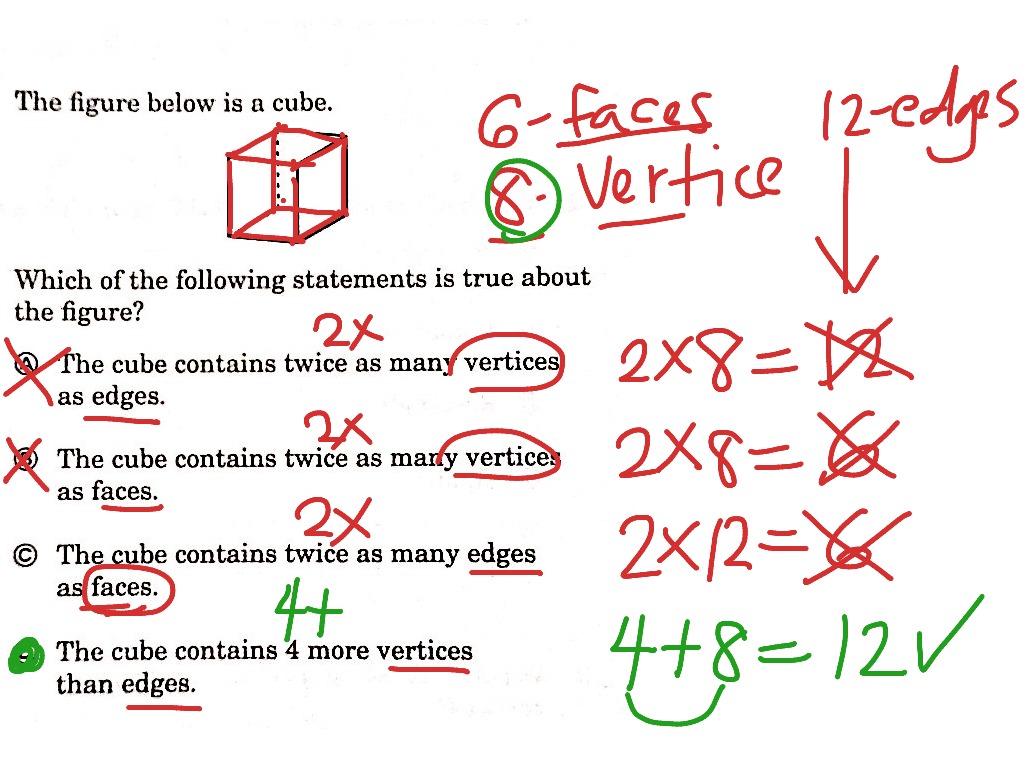 The figure below is a cube.
6-faces
12-edges
8- Vertice
Which of the following statements is true about
the figure?
2x
Ⓐ The cube contains twice as many vertices
as edges.
2x8=12
2x
Ⓑ The cube contains twice as many vertices
as faces.
2x8=6
2x
Ⓒ The cube contains twice as many edges
as faces.
2x12=6
4+
The cube contains 4 more vertices
than edges.
4+8=12✓